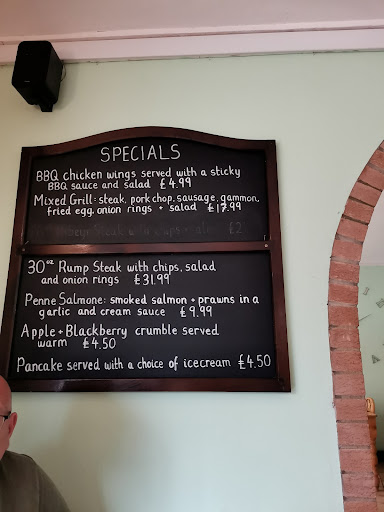 SPECIALS
BBQ chicken wings served with a sticky
BBQ sauce and salad £4.99
Mixed Grill: steak, pork chop, sausage, gammon,
fried egg, onion rings + salad £17.99
Steak with chips + salad £2
30oz Rump Steak with chips, salad
and onion rings £31.99
Penne Salmone: smoked salmon + prawns in a
garlic and cream sauce £9.99
Apple + Blackberry crumble served
warm £4.50
Pancake served with a choice of icecream £4.50